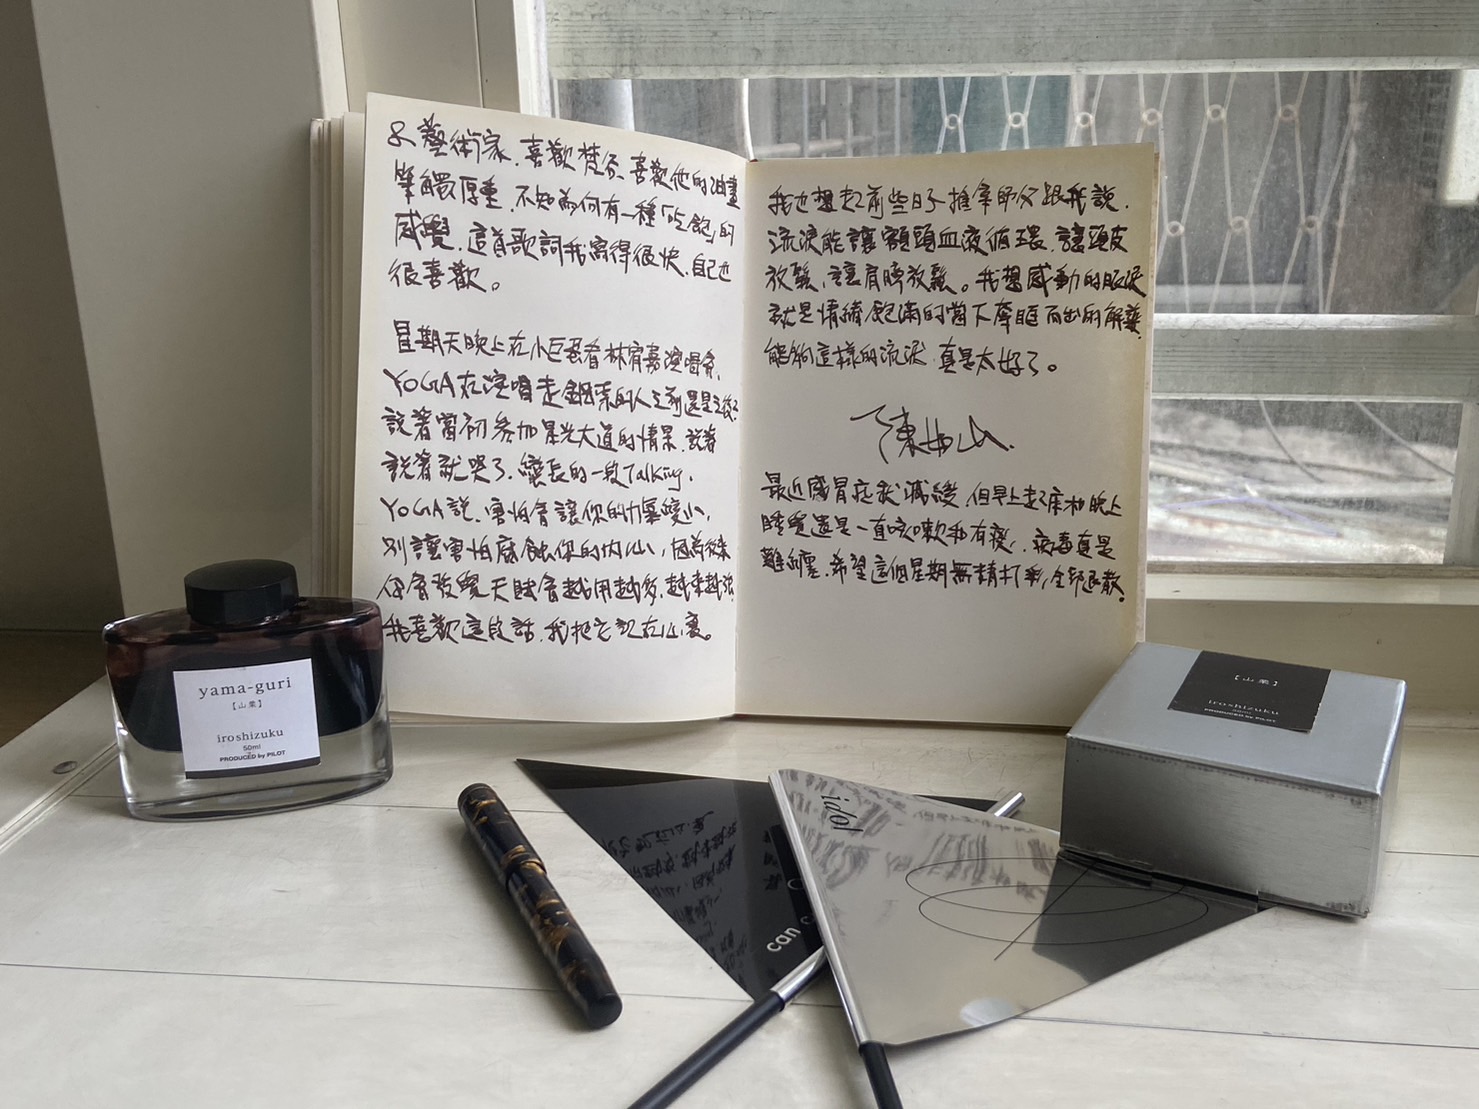 & 藝術家. 喜歡梵谷. 喜歡他的油畫
筆觸厚重, 不知為何有一種「吃飽」的
感覺, 這首歌詞我寫得很快, 自己也
很喜歡。
星期天晚上在小巨蛋看林宥嘉演唱會,
YOGA在演唱走鋼索的人之前還是之後
說著當初參加星光大道的情景, 說著
說著就哭了, 蠻長的一段Talking,
YOGA說, 害怕會讓你的力量變小,
別讓害怕腐蝕你的內心, 因為後來
你會發覺天賦會越用越多, 越來越強,
我喜歡這段話, 我把它記在心裏。
我也想起前些日子推拿師父跟我說,
流淚能讓額頭血液循環, 讓頭皮
放鬆, 讓肩膀放鬆。我想感動的眼淚
就是情緒飽滿的當下奪眶而出的解藥
能夠這樣的流淚, 真是太好了。
陳如山
最近感冒症狀減緩, 但早上起床和晚上
睡覺還是一直咳嗽和有痰, 病毒真是
難纏, 希望這個星期無精打彩, 全部退散。
yama-guri
【山栗】
iroshizuku
50ml
PRODUCED by PILOT
【山栗】
iroshizuku
50ml
PRODUCED by PILOT
idol
can